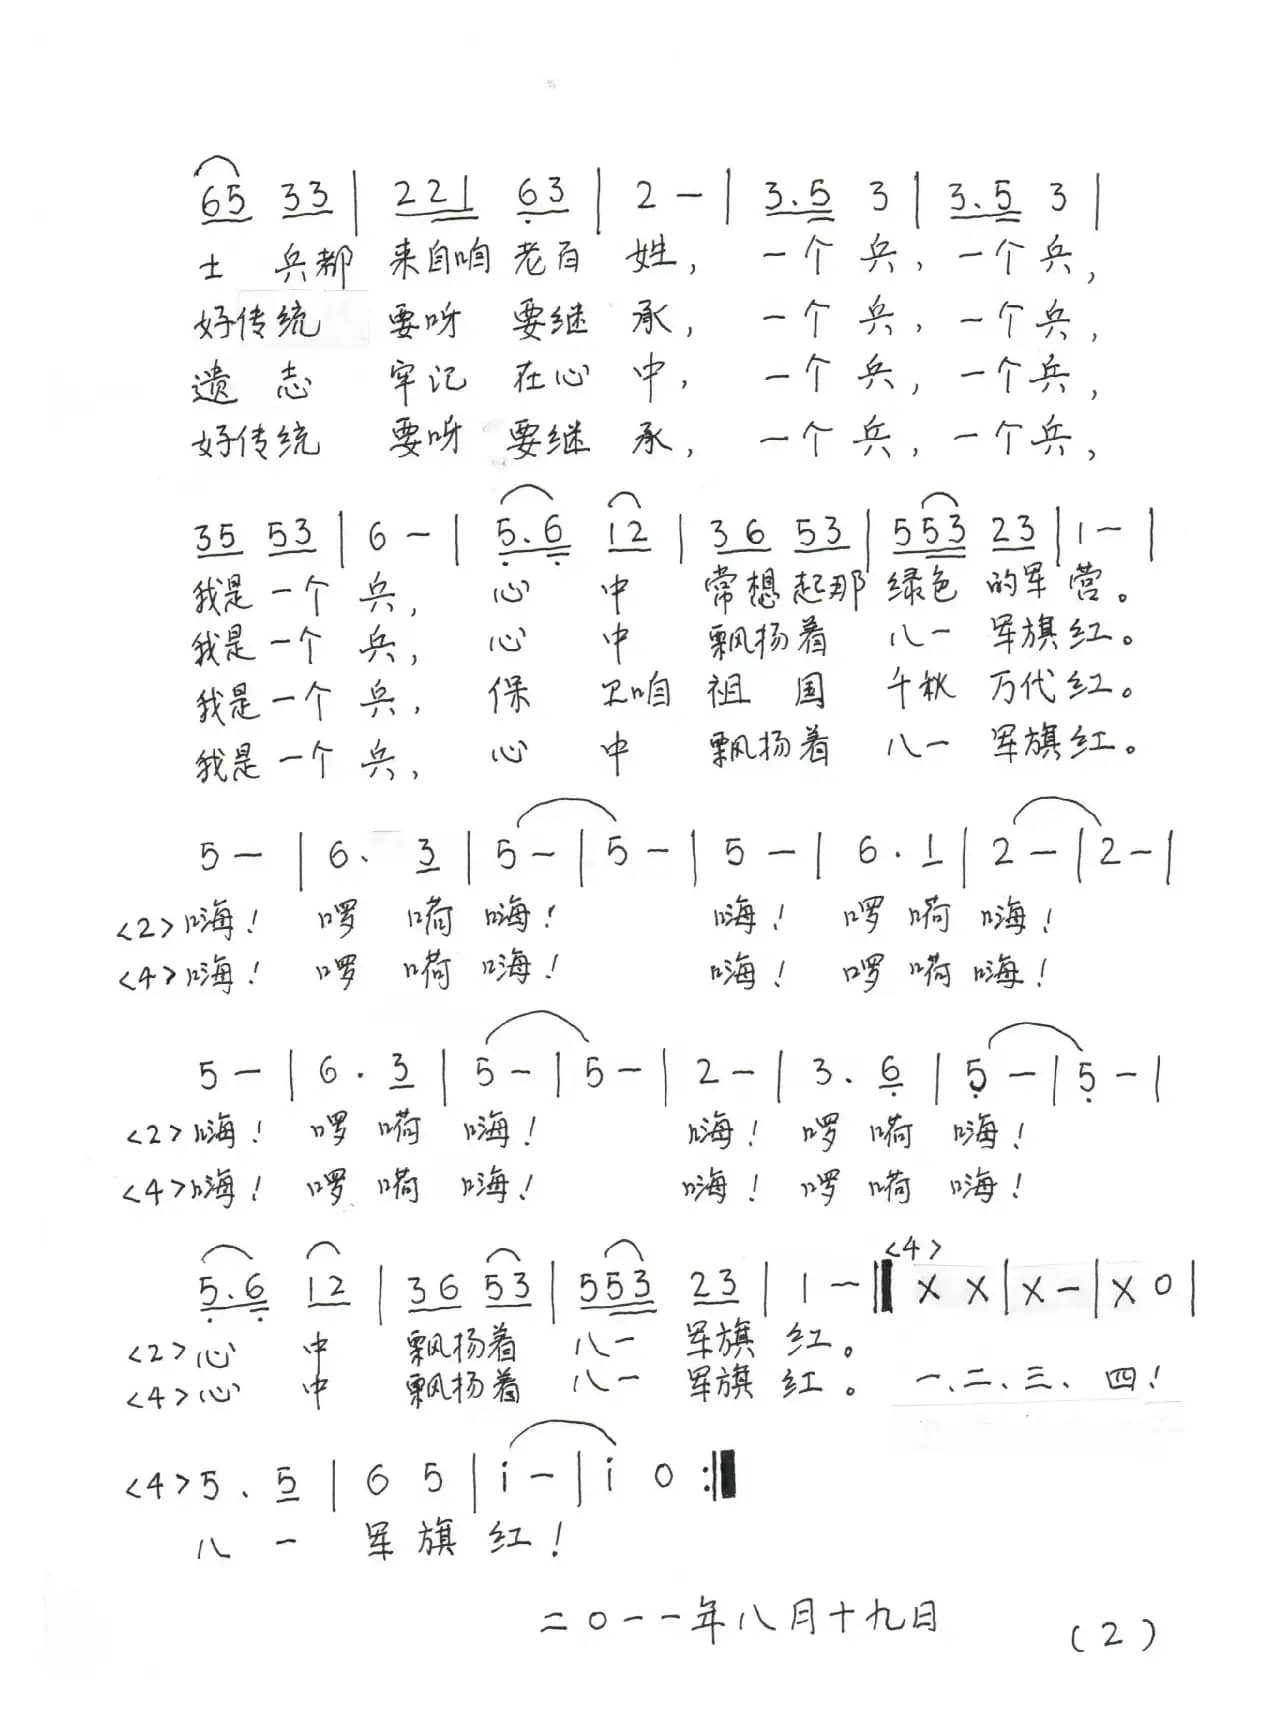 65 33 | 221 63 | 2 - | 3.5 3 | 3.5 3 |
士 兵都 来自咱 老百 姓, 一个 兵, 一个兵,
好传统 要呀 要继 承, 一个 兵, 一个兵,
遗 志 牢记 在心 中, 一个 兵, 一个兵,
好传统 要呀 要继 承, 一个 兵, 一个兵,
35 53 | 6 - | 5.6 12 | 36 53 | 553 23 | 1 - |
我是 一个 兵, 心 中 常想 起那 绿色 的军 营。
我是 一个 兵, 心 中 飘扬着 八一 军旗 红。
我是 一个 兵, 保 卫咱 祖 国 千秋 万代 红。
我是 一个 兵, 心 中 飘扬着 八一 军旗 红。
5 - | 6. 3 | 5 - | 5 - | 5 - | 6. 1 | 2 - | 2 - |
<2>嗨! 啰 嗬 嗨! 嗨! 啰 嗬 嗨!
<4>嗨! 啰 嗬 嗨! 嗨! 啰 嗬 嗨!
5 - | 6. 3 | 5 - | 5 - | 2 - | 3. 6 | 5 - | 5 - |
<2>嗨! 啰 嗬 嗨! 嗨! 啰 嗬 嗨!
<4>嗨! 啰 嗬 嗨! 嗨! 啰 嗬 嗨!
<4>
5.6 12 | 36 53 | 553 23 | 1 - ‖ X X | X - | X 0 |
<2>心 中 飘扬着 八一 军旗 红。
<4>心 中 飘扬着 八一 军旗 红。 一、二、三、四!
<4>5. 5 | 6 5 | i - | i 0 :‖
八 一 军 旗 红!
二〇一一年八月十九日
(2)